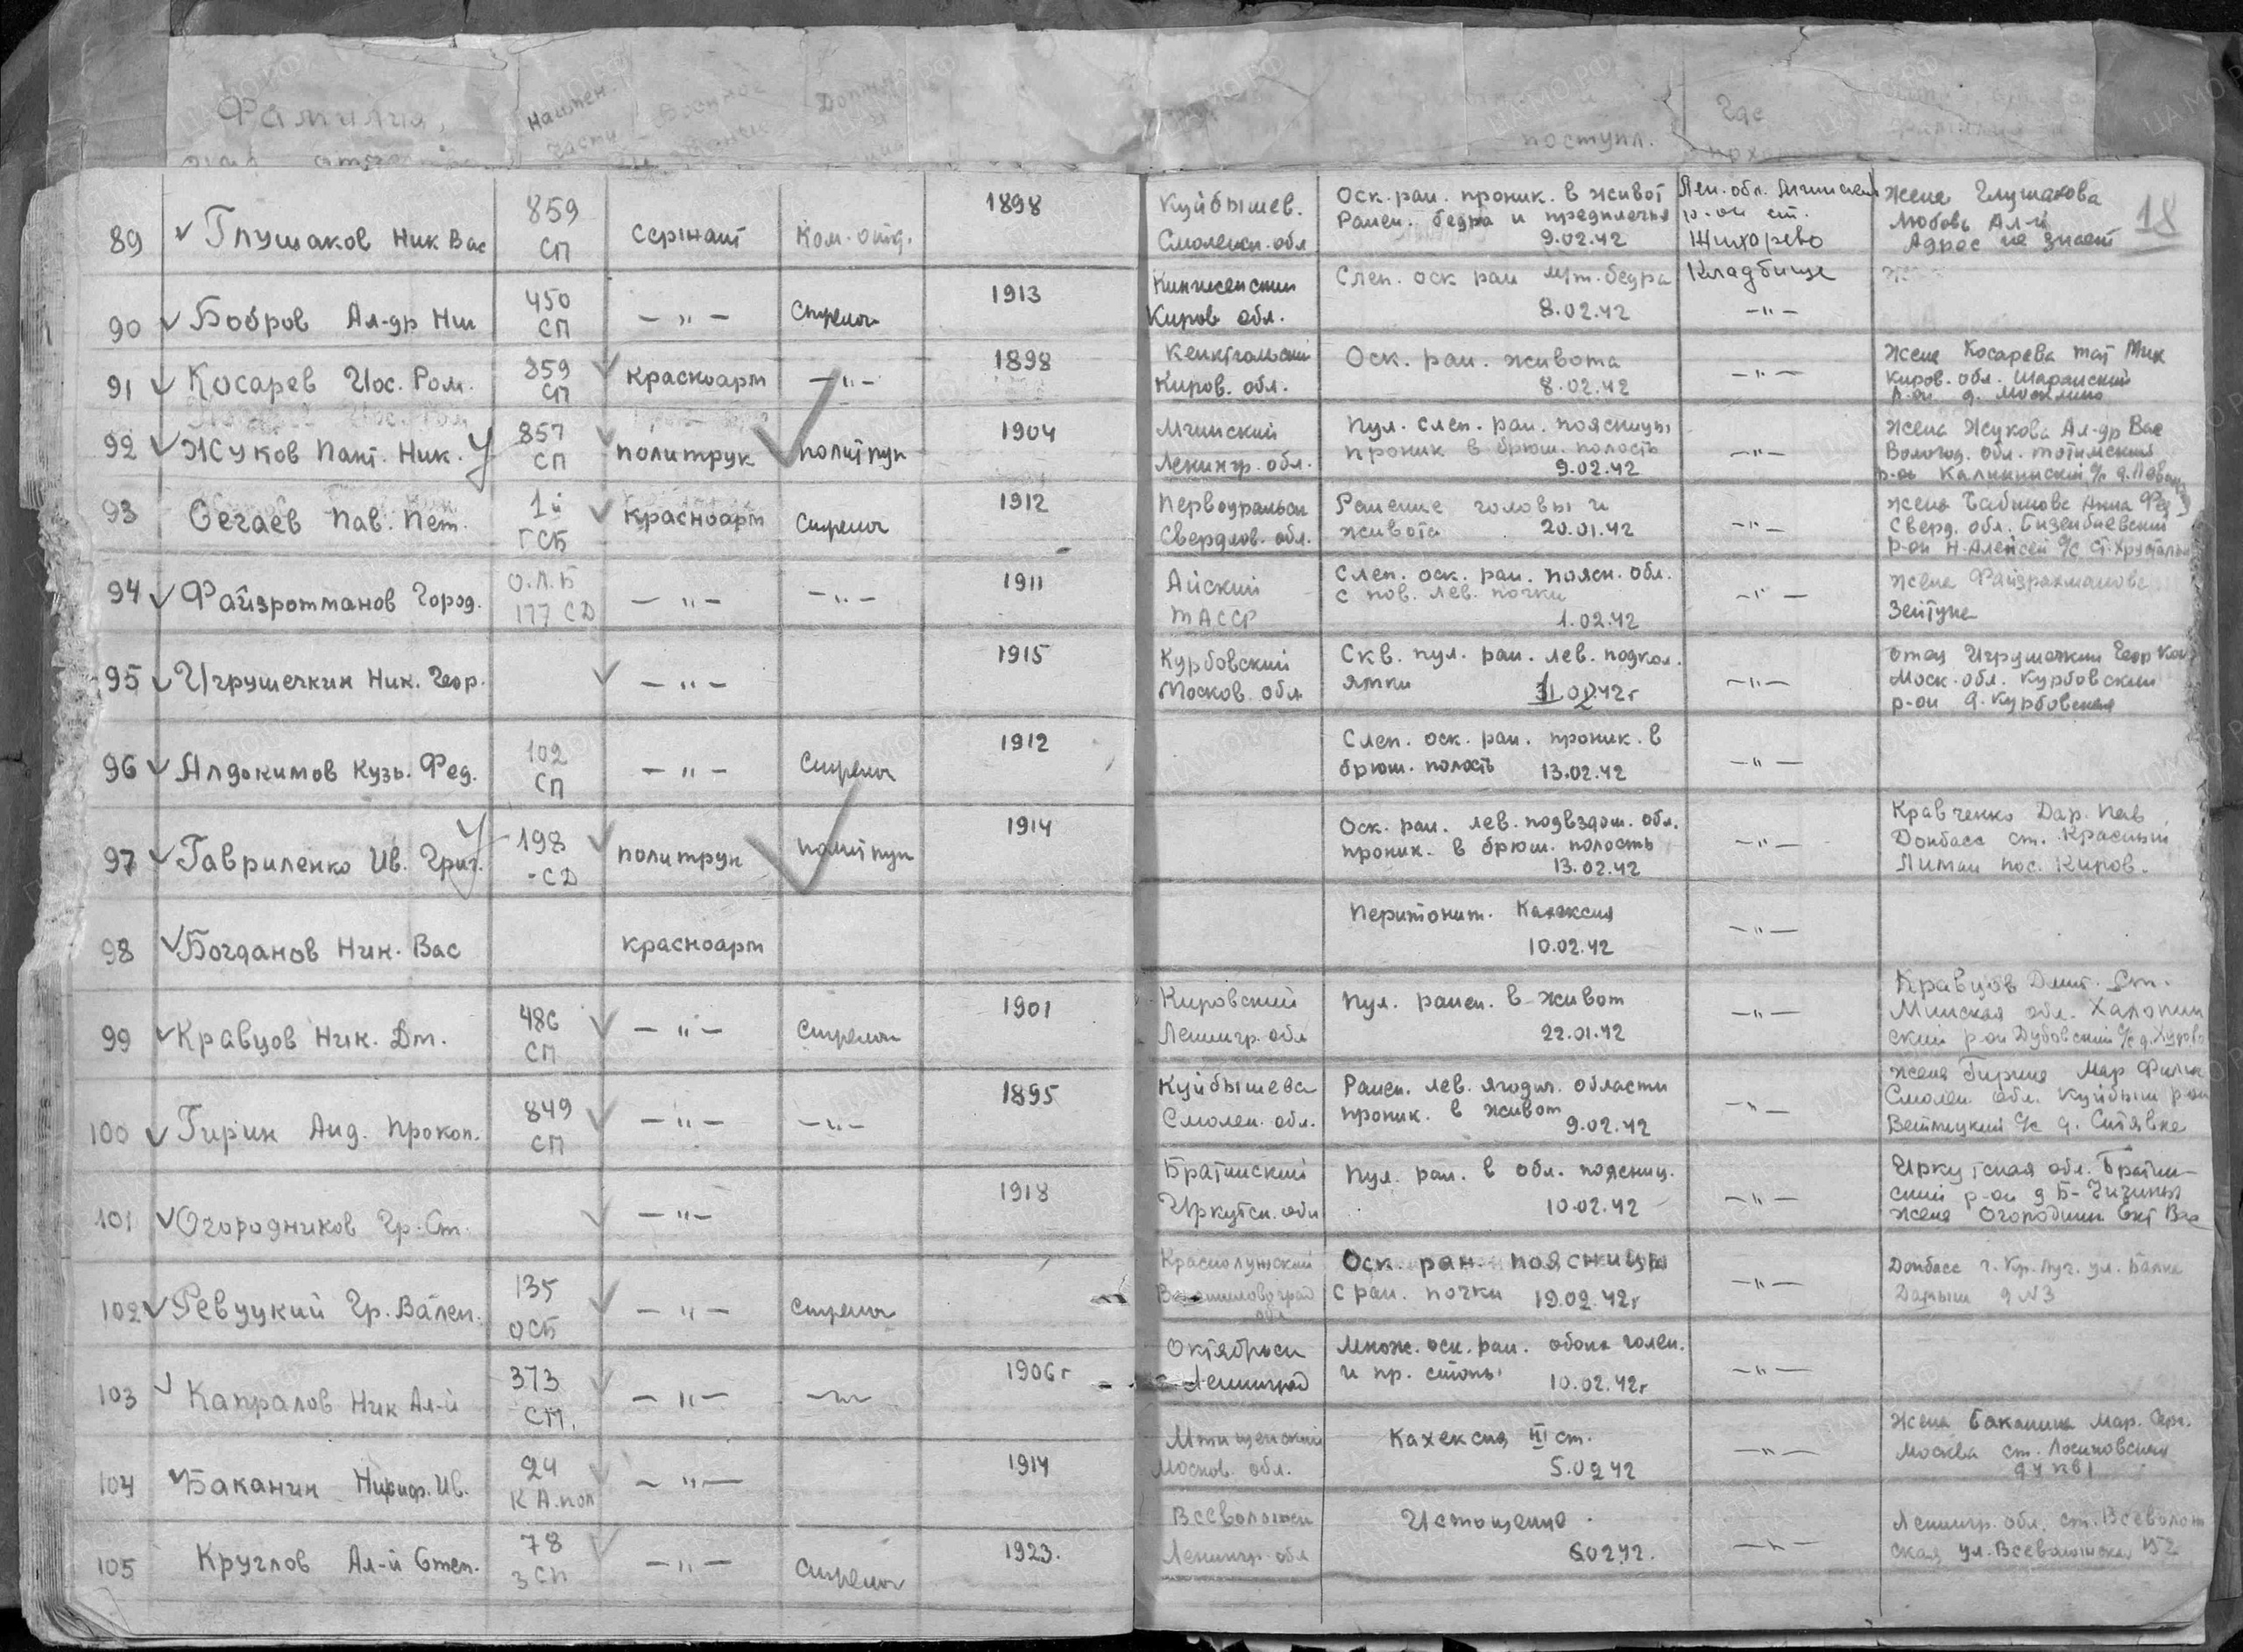 Фамилия,
Наимен. Военное
части
поступл.
Где
18
89 Глушаков Ник Вас 859 СП Сержант Ком. отд. 1898 Куйбышев. Смоленск. обл Оск. ран. проник. в живот Ранен. бедра и предплечья 9.02.42 Лен. обл. Мгинский р-он ст. Жихарево Кладбище Жена Глушакова Любовь Ал-й Адрес не знает
90 Бобров Ал-др Ник 450 СП — " — Стрелок 1913 Киров обл. Слеп. оск ран м/т. бедра 8.02.42 — " — Ж
91 Косарев Иос. Ром. 859 СП Красноарм — " — 1898 Киров. обл. Оск. ран. живота 8.02.42 — " — Жена Косарева Киров. обл. Шаранский р-он д.
92 Жуков Пант. Ник. 857 СП политрук политрук 1904 Мгинский Ленингр. обл. Пул. слеп. ран. поясницы проник в брюш. полость 9.02.42 — " — Жена Жукова Ал-др Вас Вологод. обл. Тотемский р-он Калининский с/с
93 Сегаев Пав. Пет. 1й ГСБ Красноарм Стрелок 1912 Первоуральск Свердлов. обл. Ранение головы и живота 20.01.42 — " — жена Анна Сверд. обл. р-он
94 Файзротманов Город. О.Л.Б 177 СД — " — — " — 1911 Айский ТАССР Слеп. оск. ран. поясн. обл. с пов. лев. почки 1.02.42 — " — жена Файзрахманова Зейтуна
95 Игрушечкин Ник. Геор. — " — 1915 Курбовский Москов. обл Скв. пул. ран. лев. подкол. ямки 02.42г — " — отец Игрушечкин Геор Моск. обл. Курбовский р-он д. Курбовская
96 Алдокимов Кузь. Фед. 102 СП — " — Стрелок 1912 Слеп. оск. ран. проник. в брюш. полость 13.02.42 — " —
97 Гавриленко Ив. Григ. 198 СД политрук политрук 1914 Оск. ран. лев. подвздош. обл. проник. в брюш. полость 13.02.42 — " — Кравченко Дар. Пав Донбасс ст. Красный Лиман пос. Киров.
98 Богданов Ник. Вас Красноарм Перитонит. Кахексия 10.02.42 — " —
99 Кравцов Ник. Дм. 486 СП — " — Стрелок 1901 Кировский Ленингр. обл Пул. ранен. в живот 22.01.42 — " — Кравцов Дмит. Ст. Минская обл. Халопин ский р-он Дубовский с/с д.
100 Гирин Анд. Прокоп. 849 СП — " — — " — 1895 Куйбышева Смолен. обл. Ранен. лев. ягодич. области проник. в живот 9.02.42 — " — жена Гирина Мар Смолен обл. Куйбыш р-он с/с д. Ситявка
101 Огородников Гр. Ст. — " — 1918 Братский Иркутск. обл Пул. ран. в обл. поясниц. 10.02.42 — " — Иркутская обл. Брат ский р-он д жена Огородник. Вас
102 Ревуцкий Гр. Вален. 135 ОСБ — " — Стрелок Краснолучский Ворошиловоград обл Оск. ран. поясницы с ран. почки 19.02.42г — " — Донбасс г. Кр. Луч. ул. Балка д N3
103 Капралов Ник Ал-й 373 СП. — " — — " — 1906г Октябрьск Ленинград Множ. оск. ран. обоих голен. и пр. стопы 10.02.42г — " —
104 Баканин Никиф. Ив. 24 К А.пол — " — 1914 Мытищенский Москов. обл. Кахексия III ст. 5.02 42 — " — Жена Баканина Мар. Серг. Москва ст. Лосиновская
105 Круглов Ал-й Степ. 78 ЗСП — " — Стрелок 1923. Всеволожск Ленингр. обл Истощение. 60242. — " — Ленингр. обл. ст. Всеволож ская ул. Всеволожская